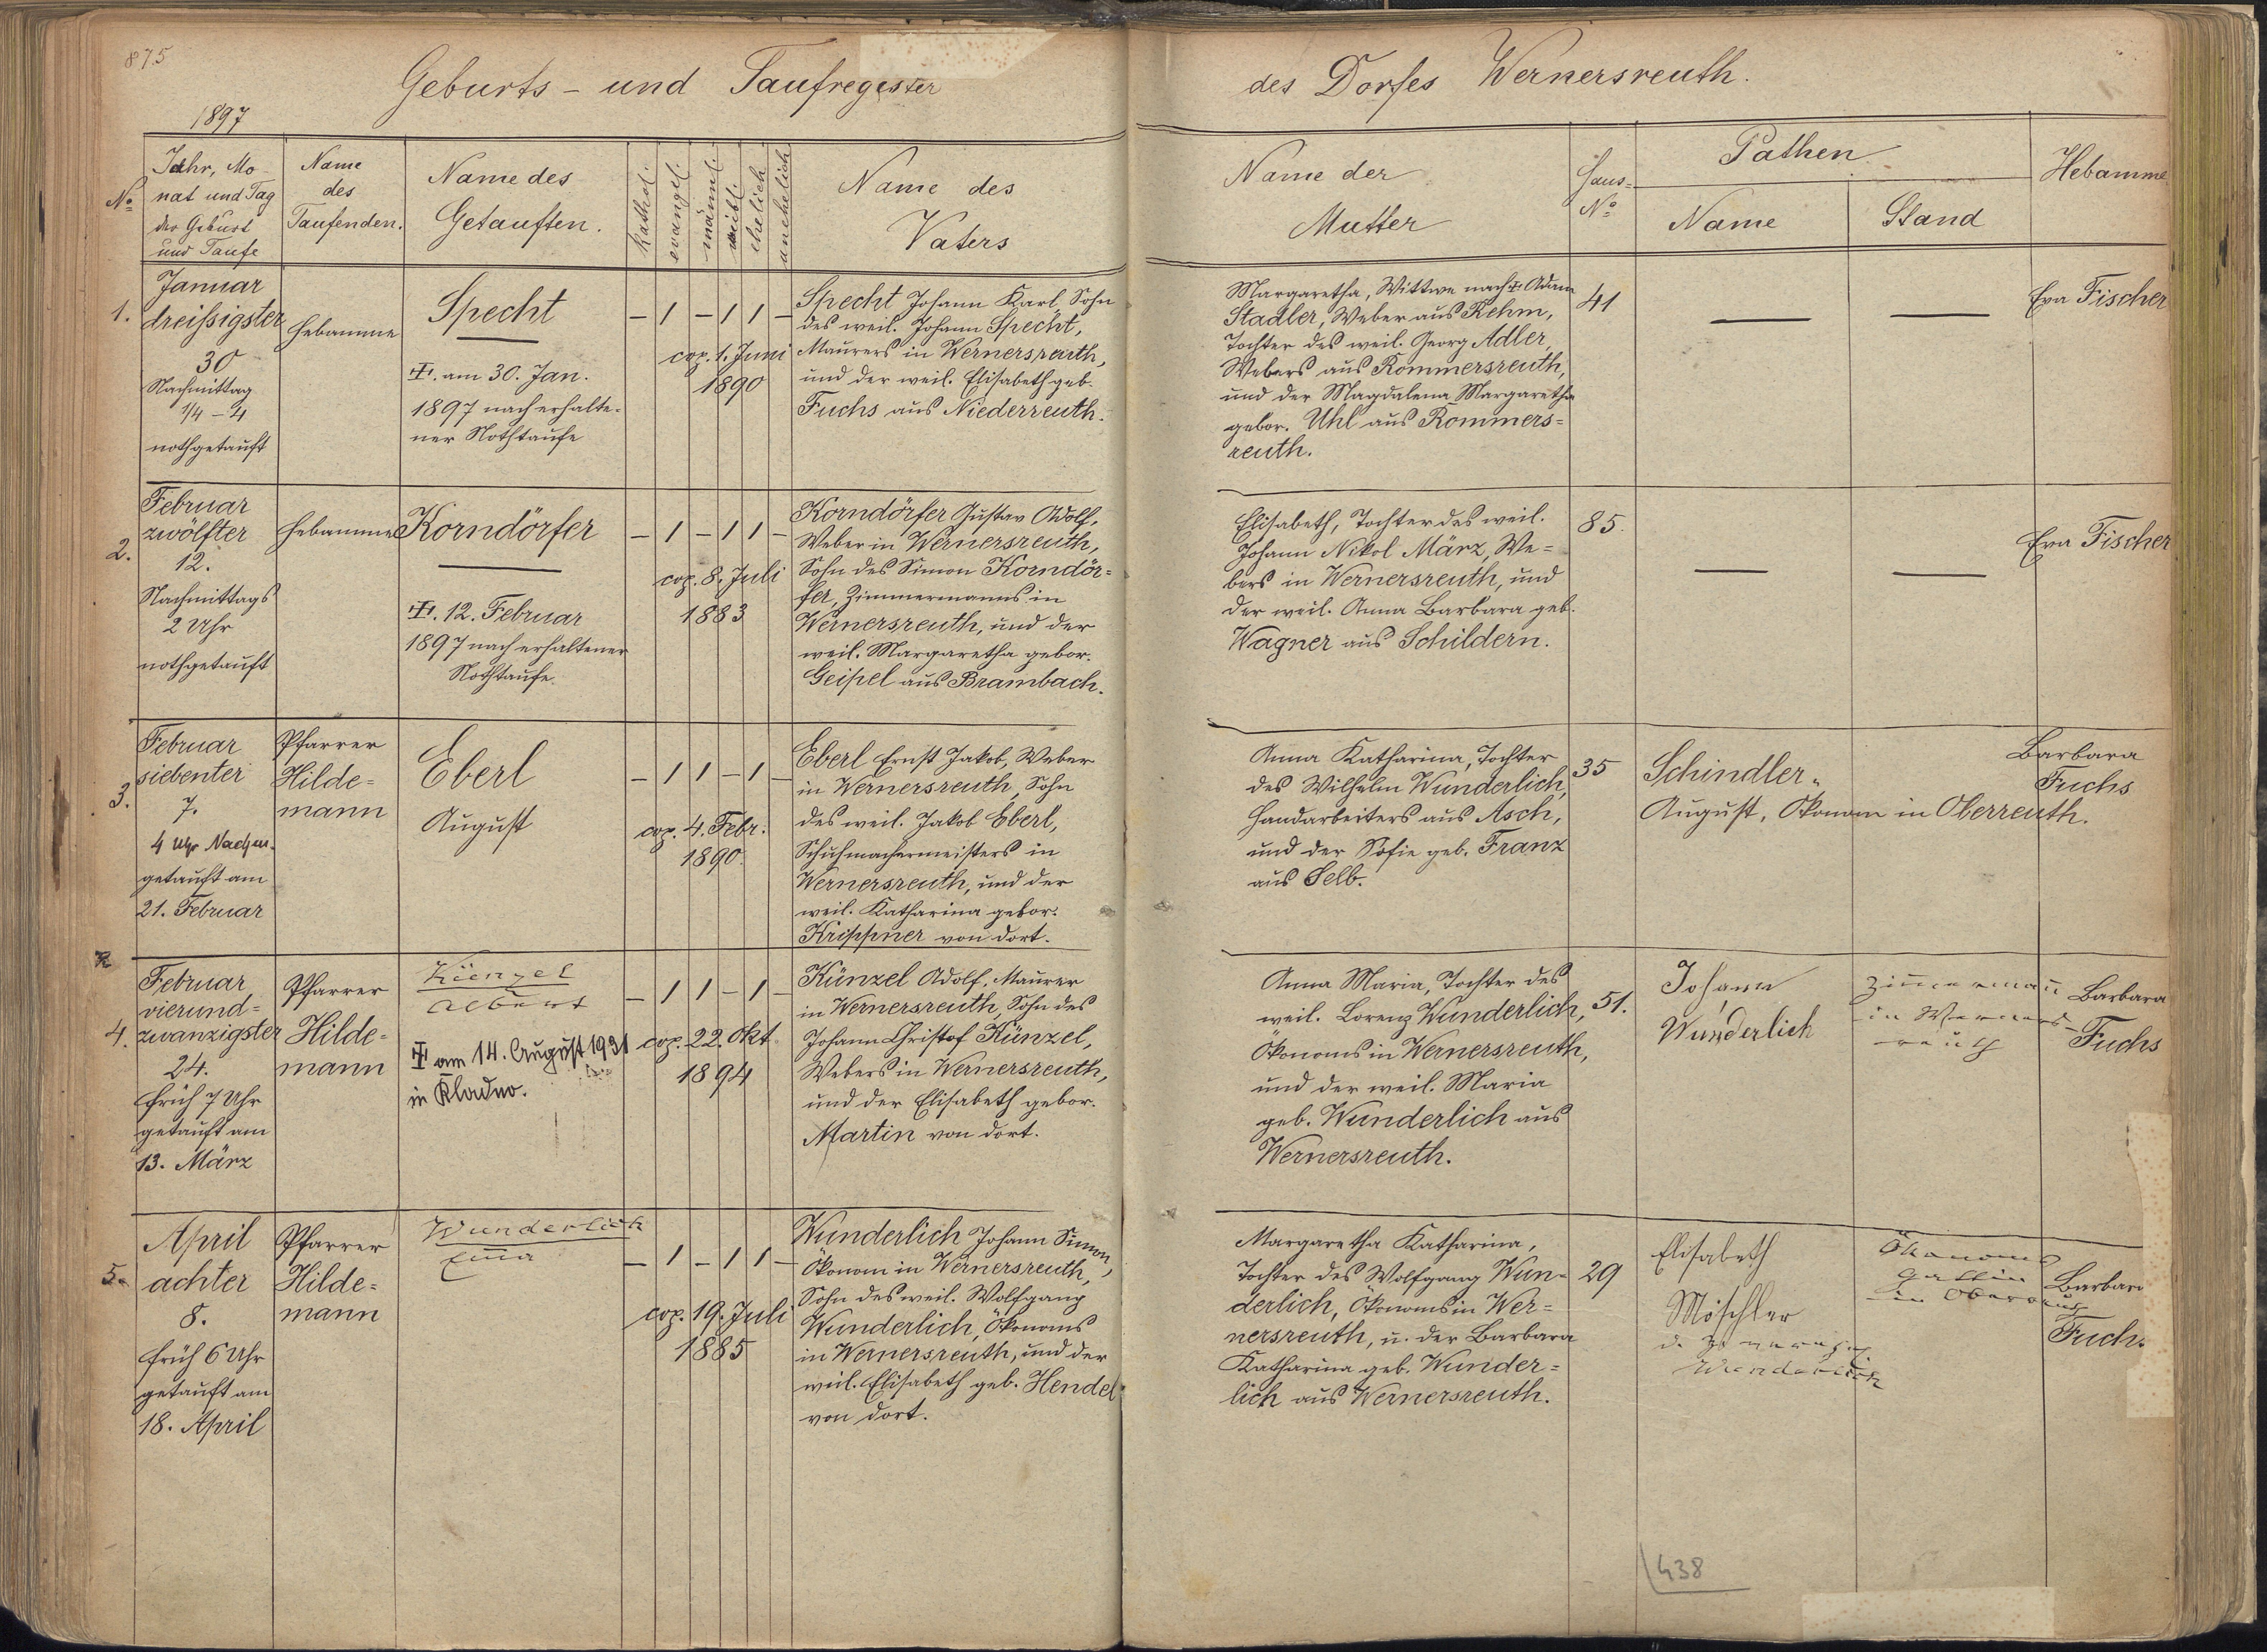 875
Geburts- und Taufregester
des Dorfes Wernersreuth.
1897
No
Jahr, Mo
nat und Tag
der Geburt
und Taufe
Name
des
Taufenden.
Name des
Getauften.
kathol.
evangel.
männl.
weibl.
ehelich
unehelich
Name des
Vaters
Name der
Mutter
Haus-
No
Pathen
Name
Stand
Hebamme
1.
Januar
dreißigster
30
Nachmittag
1/4 - 4
nothgetauft
Hebamme
Specht
am 30. Jan.
1897 nach erhalte-
ner Nothtaufe
- 1 - 1 1 -
cop. 1. Juni
1890
Specht Johann Karl, Sohn
des weil. Johann Specht,
Maurers in Wernersreuth,
und der weil. Elisabeth geb.
Fuchs aus Niederreuth.
Margaretha, Wittwe nach Adam
Stadler, Weber aus Rehm,
Tochter des weil. Georg Adler,
Webers aus Rommersreuth,
und der Magdalena Margaretha
gebor. Uhl aus Rommers-
reuth.
41
—
—
Eva Fischer
2.
Februar
zwölfter
12.
Nachmittags
2 Uhr
nothgetauft
Hebamme
Korndörfer
12. Februar
1897 nach erhaltener
Nothtaufe.
- 1 - 1 1 -
cop. 8. Juli
1883
Korndörfer Gustav Adolf,
Weber in Wernersreuth,
Sohn des Simon Korndör-
fer, Zimmermanns in
Wernersreuth, und der
weil. Margaretha gebor.
Geipel aus Brambach.
Elisabeth, Tochter des weil.
Johann Nikol März, We-
bers in Wernersreuth, und
der weil. Anna Barbara geb.
Wagner aus Schildern.
85.
—
—
Eva Fischer
3.
Februar
siebenter
7.
4 Uhr Nachm.
getauft am
21. Februar
Pfarrer
Hilde-
mann
Eberl
August
- 1 1 - 1 -
cop. 4. Febr.
1890.
Eberl Ernst Jakob, Weber
in Wernersreuth, Sohn
des weil. Jakob Eberl,
Schuhmachermeisters in
Wernersreuth, und der
weil. Katharina gebor.
Krippner von dort.
Anna Katharina, Tochter
des Wilhelm Wunderlich,
Handarbeiters aus Asch,
und der Sofie geb. Franz
aus Selb.
35
Schindler
August, Ökonom in Oberreuth.
Barbara
Fuchs
4.
Februar
vierund-
zwanzigster
24.
früh 7 Uhr
getauft am
13. März
Pfarrer
Hilde-
mann
Künzel
Albert
am 14. August 1931
in Kladno.
- 1 1 - 1 -
cop. 22. Okt.
1894
Künzel Adolf, Maurer
in Wernersreuth, Sohn des
Johann Christof Künzel,
Webers in Wernersreuth,
und der Elisabeth gebor.
Martin von dort.
Anna Maria, Tochter des
weil. Lorenz Wunderlich,
Ökonoms in Wernersreuth,
und der weil. Maria
geb. Wunderlich aus
Wernersreuth.
51.
Johann
Wunderlich
Zimmermann
in Werners-
reuth
Barbara
Fuchs
5.
April
achter
8.
früh 6 Uhr
getauft am
18. April
Pfarrer
Hilde-
mann
Wunderlich
Emma
- 1 - 1 1 -
cop. 19. Juli
1885
Wunderlich Johann Simon,
Ökonom in Wernersreuth,
Sohn des weil. Wolfgang
Wunderlich, Ökonoms
in Wernersreuth, und der
weil. Elisabeth geb. Hendel
von dort.
Margaretha Katharina,
Tochter des Wolfgang Wun-
derlich, Ökonoms in Wer-
nersreuth, u. der Barbara
Katharina geb. Wunder-
lich aus Wernersreuth.
29
Elisabeth
Möschler
Wunderlich
Ökonoms
gattin
in Oberreuth
Barbara
Fuchs
438